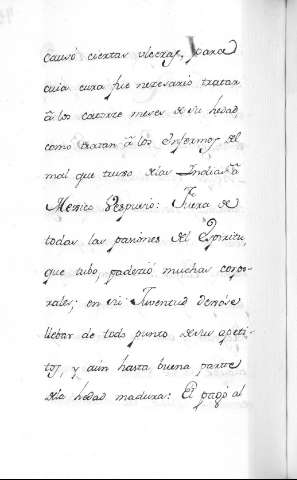 causó ciertas vlceras, para
cuia cura fue nezesario tratar
â los catorze meses de su hedad
como tratan â los Enfermos del
mal que truxo delas Indias â
Mexico Vespucio: Fuera de
todas las pasiones del Espiritu,
que tubo, padezió muchas corpo-
rales; en su Juventud dexóse
llebar de todo punto de su apeti-
tos, y aún hasta buena parte
dela hedad madura: El pagó al